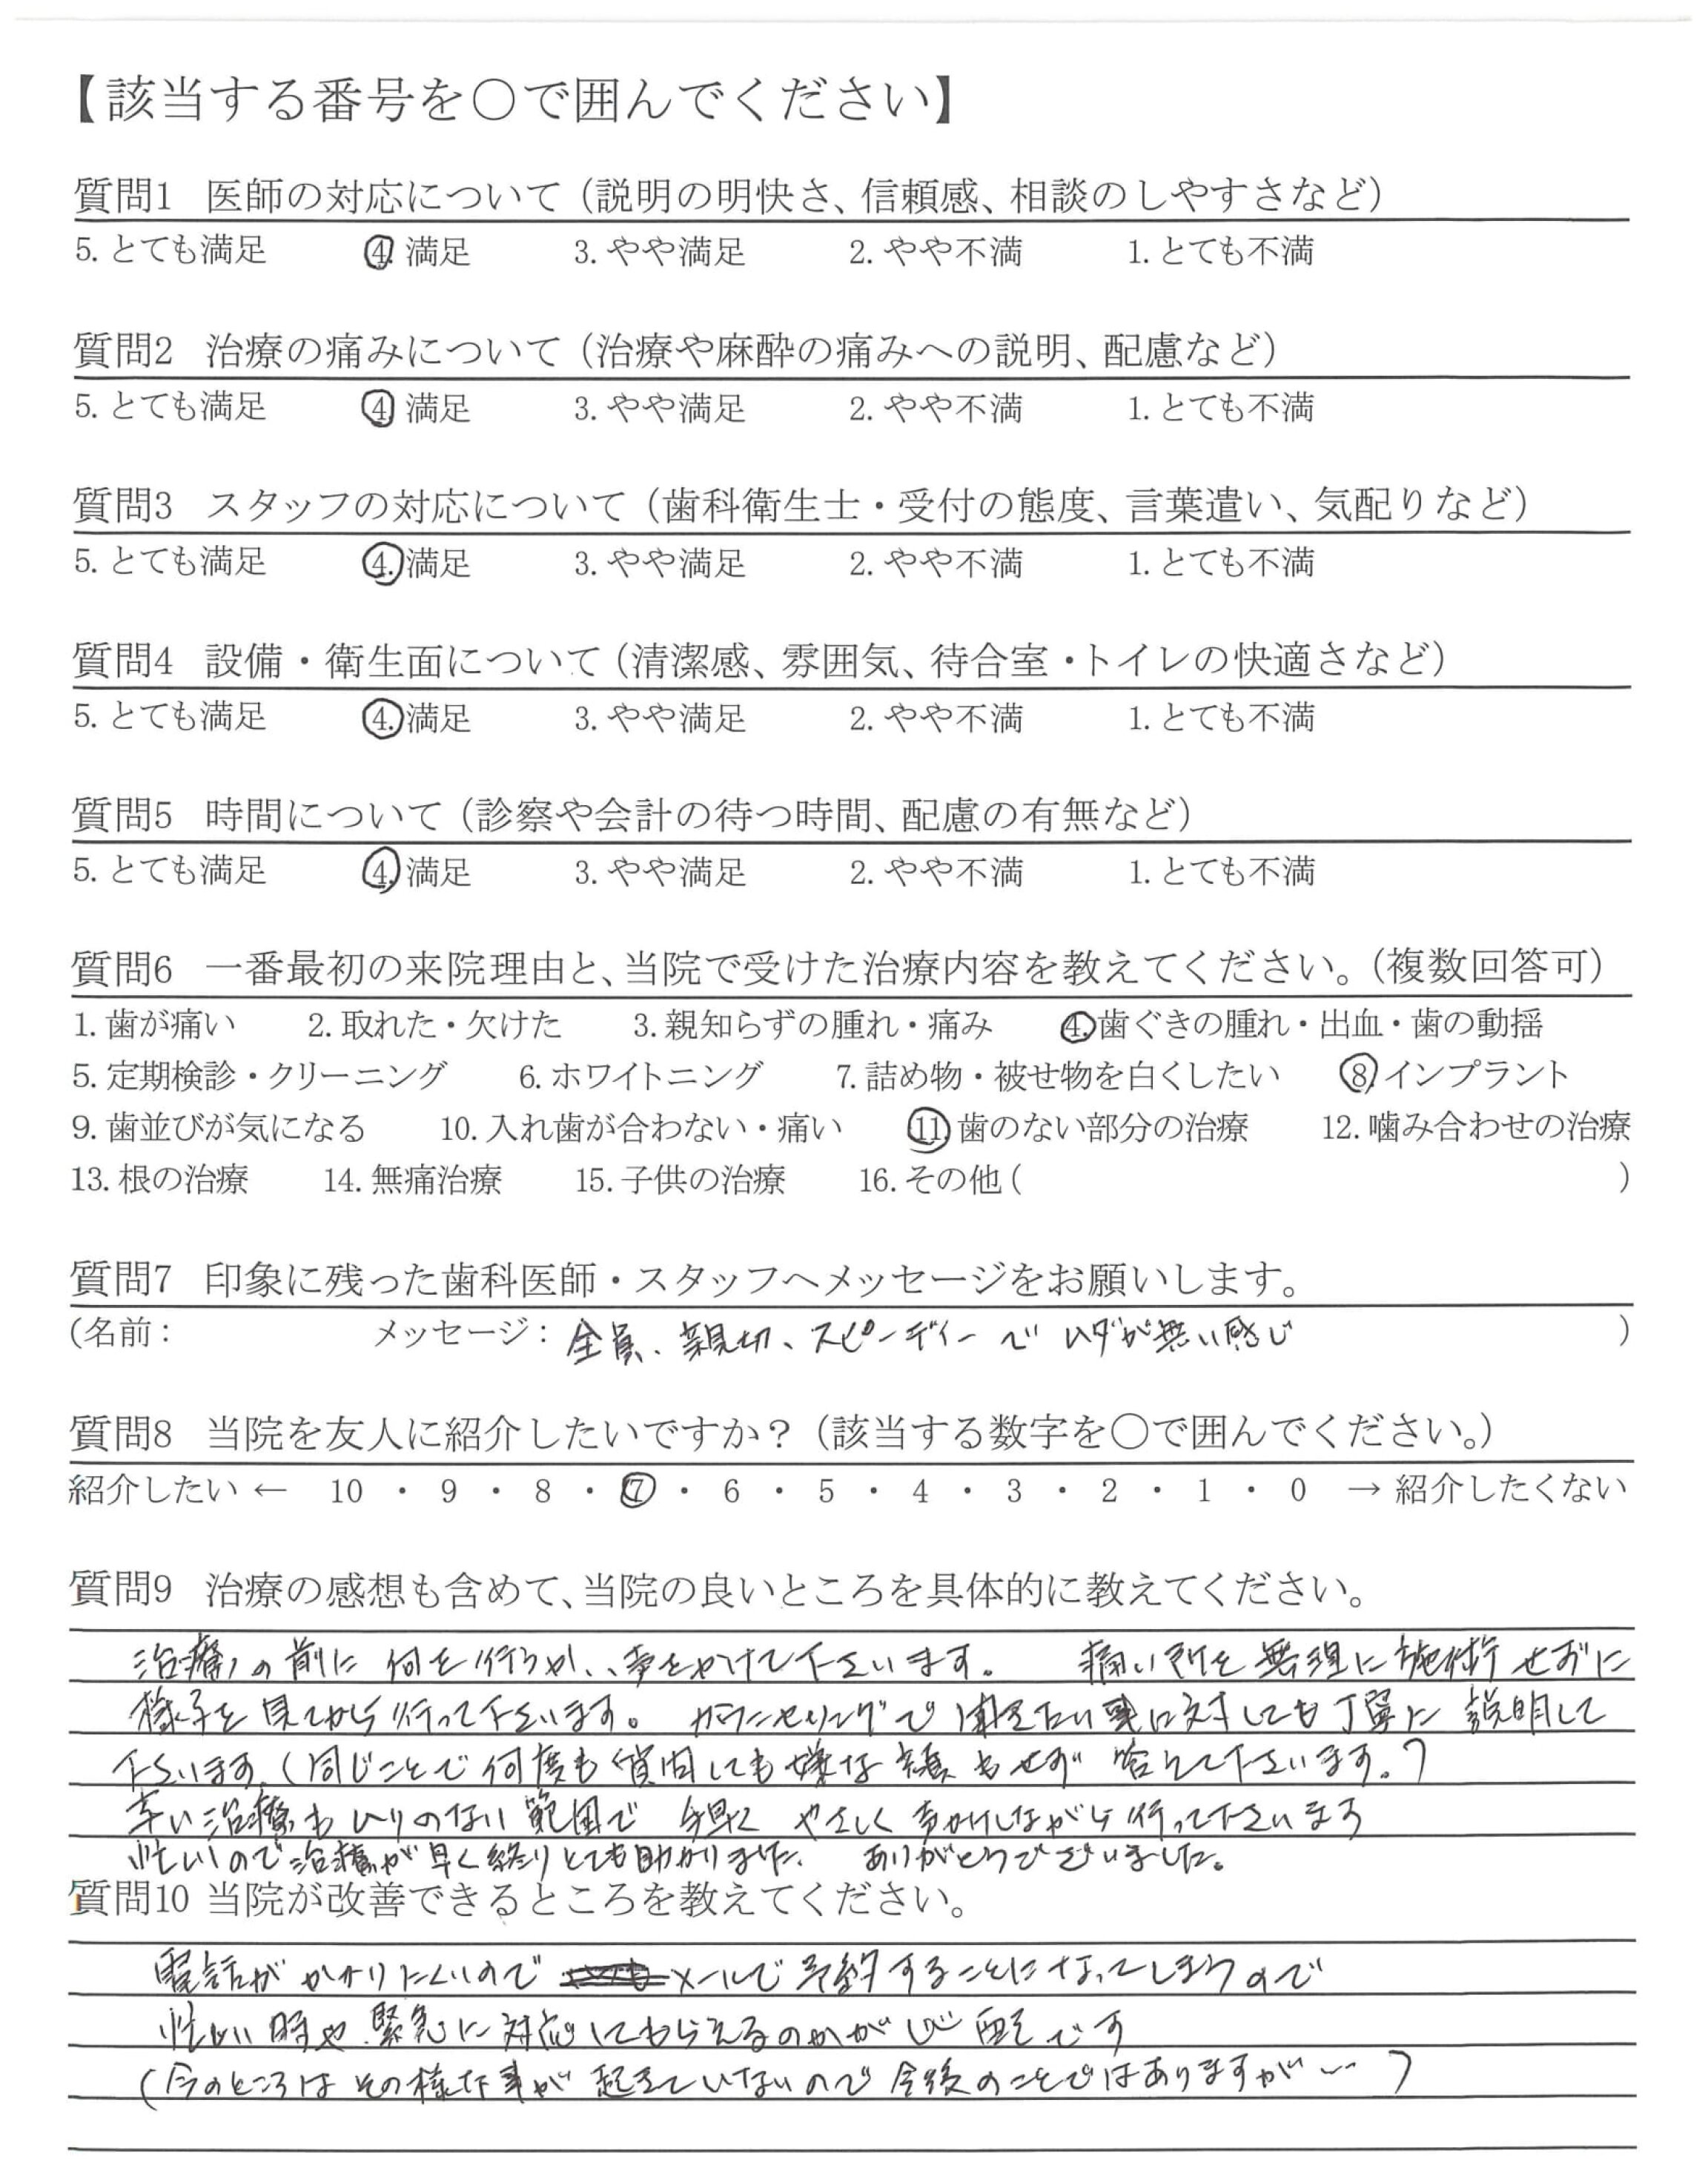 【該当する番号を○で囲んでください】
質問1 医師の対応について（説明の明快さ、信頼感、相談のしやすさなど）
5. とても満足 4. 満足 3. やや満足 2. やや不満 1. とても不満
質問2 治療の痛みについて（治療や麻酔の痛みへの説明、配慮など）
5. とても満足 4. 満足 3. やや満足 2. やや不満 1. とても不満
質問3 スタッフの対応について（歯科衛生士・受付の態度、言葉遣い、気配りなど）
5. とても満足 4. 満足 3. やや満足 2. やや不満 1. とても不満
質問4 設備・衛生面について（清潔感、雰囲気、待合室・トイレの快適さなど）
5. とても満足 4. 満足 3. やや満足 2. やや不満 1. とても不満
質問5 時間について（診察や会計の待つ時間、配慮の有無など）
5. とても満足 4. 満足 3. やや満足 2. やや不満 1. とても不満
質問6 一番最初の来院理由と、当院で受けた治療内容を教えてください。（複数回答可）
1. 歯が痛い 2. 取れた・欠けた 3. 親知らずの腫れ・痛み 4. 歯ぐきの腫れ・出血・歯の動揺
5. 定期検診・クリーニング 6. ホワイトニング 7. 詰め物・被せ物を白くしたい 8. インプラント
9. 歯並びが気になる 10. 入れ歯が合わない・痛い 11. 歯のない部分の治療 12. 噛み合わせの治療
13. 根の治療 14. 無痛治療 15. 子供の治療 16. その他（ ）
質問7 印象に残った歯科医師・スタッフへメッセージをお願いします。
（名前： メッセージ：全員、親切、スピーディーで ムダが無い感じ ）
質問8 当院を友人に紹介したいですか？（該当する数字を○で囲んでください。）
紹介したい ← 10 ・ 9 ・ 8 ・ 7 ・ 6 ・ 5 ・ 4 ・ 3 ・ 2 ・ 1 ・ 0 → 紹介したくない
質問9 治療の感想も含めて、当院の良いところを具体的に教えてください。
治療の前に 何を行うか、声をかけて下さいます。 痛い所を無理に施術せずに
様子を見てから行って下さいます。 カウンセリングで 聞きたい事に対しても丁寧に 説明して
下さいます（同じことで何度も質問しても嫌な顔もせず 答えて下さいます。）
辛い治療もムリのない範囲で 手早く やさしく 声かけしながら行って下さいます
忙しいので治療が早く終りとても助かりました。 ありがとうございました。
質問10 当院が改善できるところを教えてください。
電話がかかりにくいので メールで予約することになってしまうので
忙しい時や 緊急に対応してもらえるのかが心配です
（今のところはその様な事が起きていないので 今後のことではありますが…）